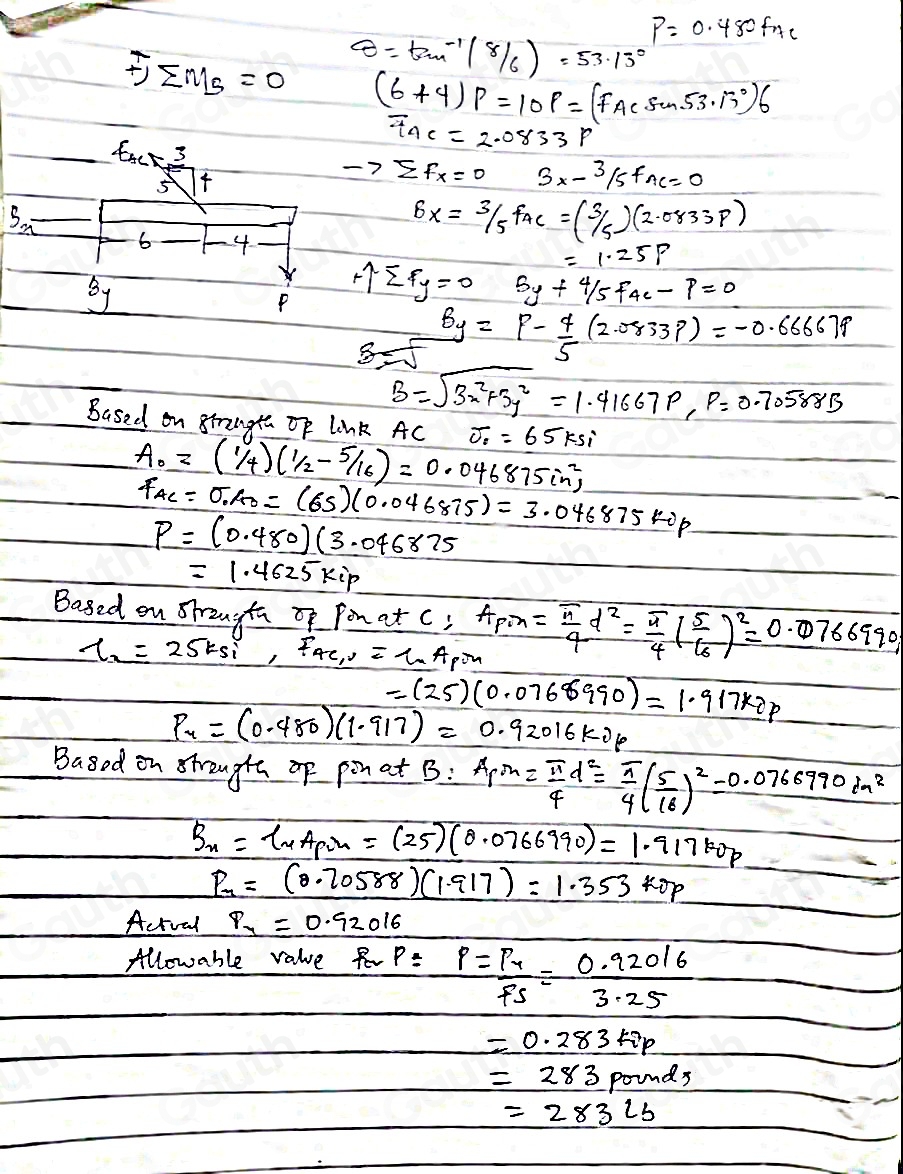 P = 0.480 FAC
θ = tan⁻¹(8/6) = 53.13°
+) ΣMB = 0
(6+4)P = 10P = (FAC sin 53.13°)6
FAC = 2.0833P
FAC 3
5 4
Bx
6 4
By P
-> ΣFx = 0 Bx - 3/5 FAC = 0
Bx = 3/5 FAC = (3/5)(2.0833P)
= 1.25P
+↑ΣFy = 0 By + 4/5 FAC - P = 0
By = P - 4/5 (2.0833P) = -0.66667P
B = √
B = √Bx² + By² = 1.41667P, P = 0.70588B
Based on strength of link AC σ. = 65 ksi
A₀ = (1/4)(1/2 - 5/16) = 0.046875 in²,
FAC = σ.A₀ = (65)(0.046875) = 3.046875 kip
P = (0.480)(3.046875
= 1.4625 kip
Based on strength of pin at C; Apin = π/4 d² = π/4 (5/16)² = 0.0766990,
τu = 25 ksi, FAC,u = τu Apin
= (25)(0.0766990) = 1.917 kip
Pu = (0.480)(1.917) = 0.92016 kip
Based on strength of pin at B: Apin = π/4 d² = π/4 (5/16)² = 0.0766990 in²
Bu = τu Apin = (25)(0.0766990) = 1.917 kip
Pu = (0.70588)(1.917) = 1.353 kip
Actual Pu = 0.92016
Allowable value for P = P = Pu/FS = 0.92016/3.25
= 0.283 kip
= 283 pounds
= 283 Lb